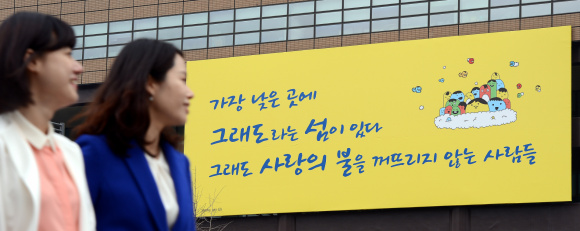 가장 낮은 곳에
그래도라는 섬이 있다
그래도 사랑의 불을 꺼뜨리지 않는 사람들